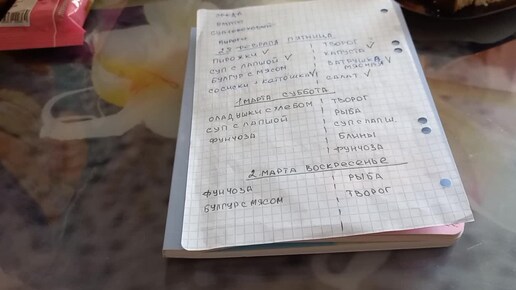 28 ФЕВРАЛЯ ПЯТНИЦА
ПИРОЖКИ ✓
ТВОРОГ ✓
СУП С ЛАПШОЙ ✓
КАПУСТА
БУЛГУР С МЯСОМ
ВАТРУШКА ✓
СОСИСКИ, КАРТОШКА ✓
САЛАТ ✓
1 МАРТА СУББОТА
ОЛАДУШКИ С ХЛЕБОМ
ТВОРОГ
СУП С ЛАПШОЙ
РЫБА
ФУНЧОЗА
СУП С ЛАПШ.
БЛИНЫ
ФУНЧОЗА
2 МАРТА ВОСКРЕСЕНЬЕ
ФУНЧОЗА
РЫБА
БУЛГУР С МЯСОМ
ТВОРОГ